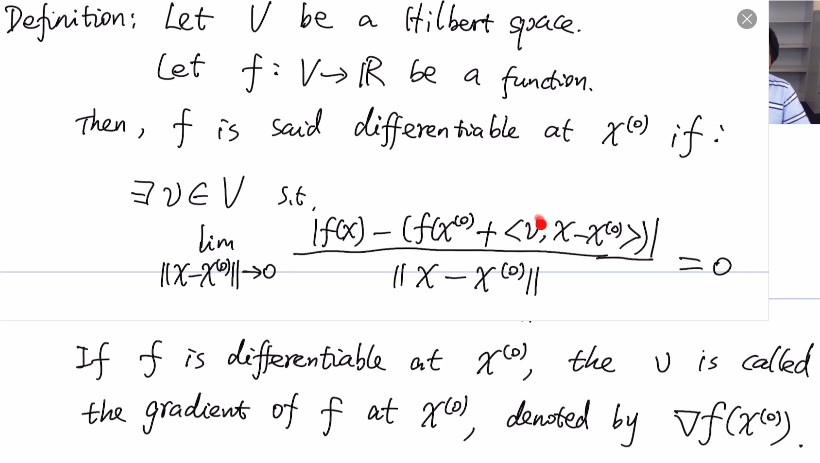 Definition: Let V be a Hilbert space.
Let f: V→ℝ be a function.
Then, f is said differentiable at x⁽⁰⁾ if:
∃ v ∈ V s.t.
lim_{||x-x⁽⁰⁾||→0} |f(x) - (f(x⁽⁰⁾ + <v, x-x⁽⁰⁾>)| / ||x - x⁽⁰⁾|| = 0
If f is differentiable at x⁽⁰⁾, the v is called
the gradient of f at x⁽⁰⁾, denoted by ∇f(x⁽⁰⁾).